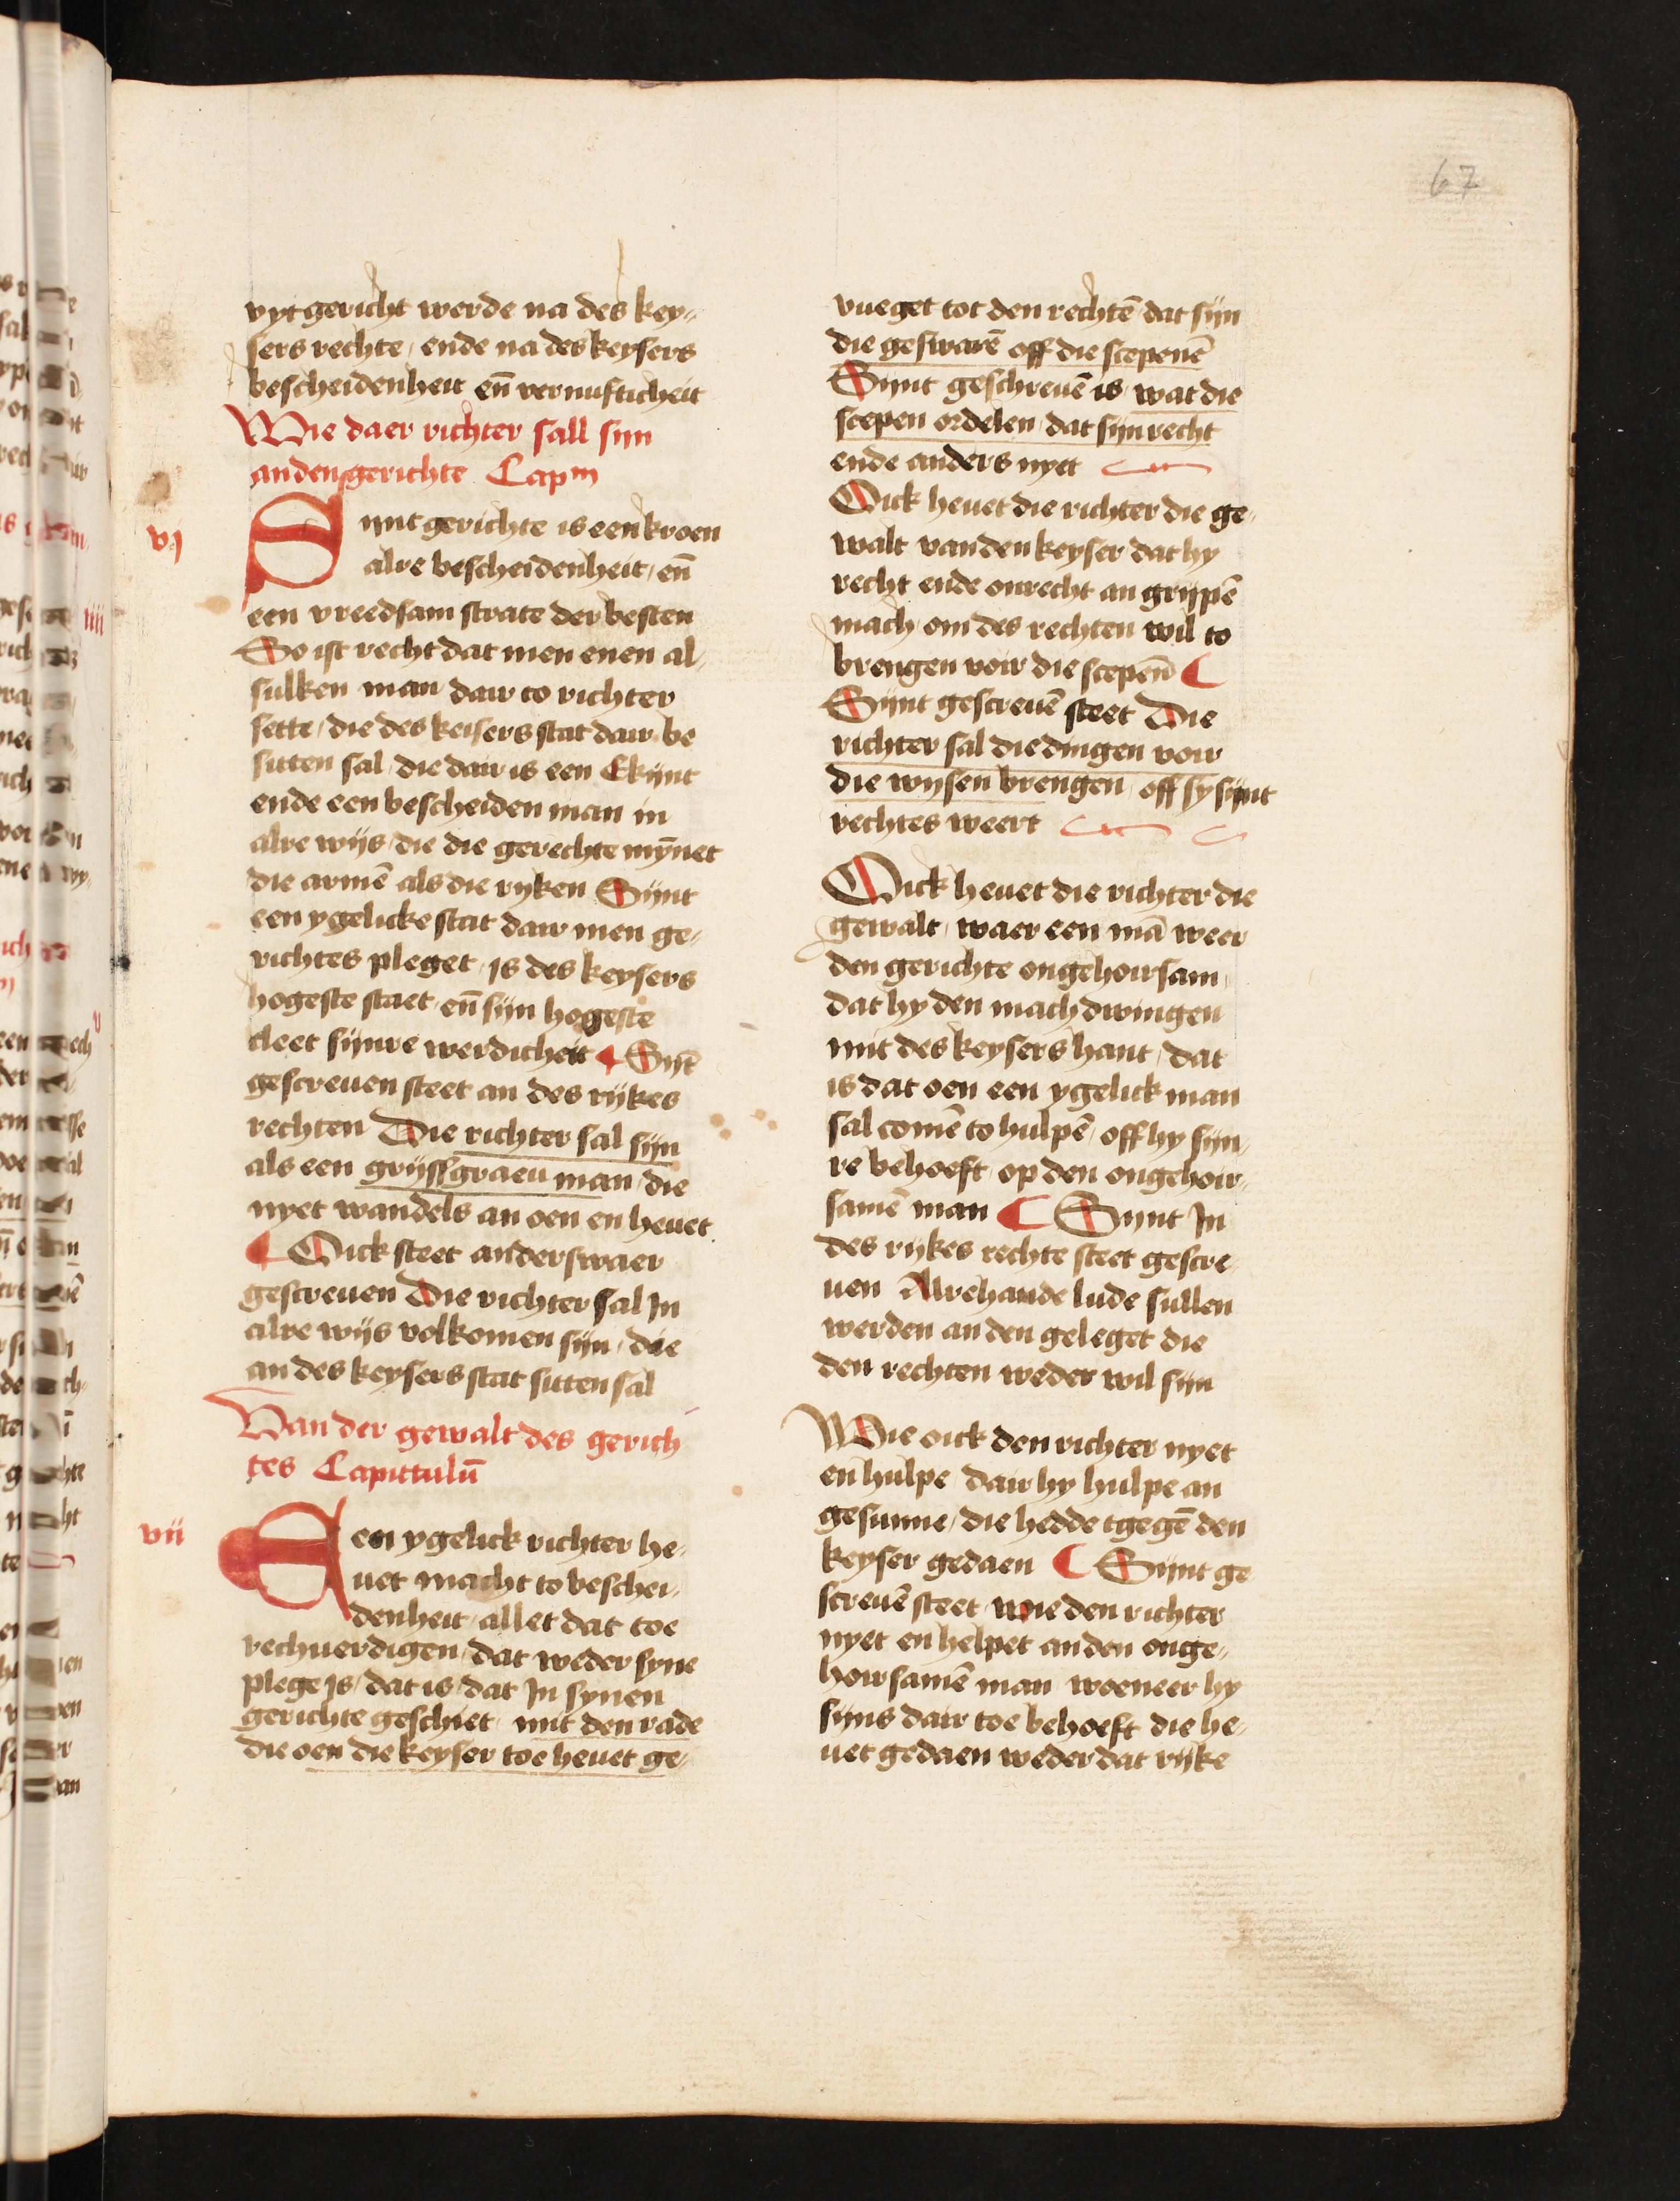 67
vytgericht werde na des key-
sers rechte / ende na des keysers
bescheidenheit en̄ vernufticheit
Wie daer richter sall sijn
an den gerichte Capm
vj
Sijnt gerichte is een kroen
alre bescheidenheit / en̄
een vreedsam strate der besten
So ist recht dat men enen al-
sulken man dair to richter
sette / die des keisers stat dair be
sitten sal / die dair is een Ekijnt
ende een bescheiden man in
alre wijs / die die gerechte mȳnet
die armē als die rijken Sijnt
een ygelicke stat dair men ge-
richtes pleget / is des keysers
hogeste staet / en̄ sijn hogeste
cleet sijnre werdicheit ¶ Sijt̄
gescreuen steet an des rijkes
rechten Die richter sal sijn
als een grijssgraeu man / die
nyet wandels an oen en heuet
¶ Oick steet anderswaer
gescreuen Die richter sal In
alre wijs volkomen sijn / die
an des keysers stat sitten sal
Van der gewalt des gerich
tes Capittulū
vii
Een ygelick richter he-
uet macht to beschei-
denheit / allet dat toe
rechuerdigen / dat weder syne
plege is / dat is / dat In synen
gerichte geschiet / mit den rade
die oen die keyser toe heuet ge-
vueget tot den rechtē dat sijn
die geswarē off die scepenē
Sijnt geschreuē is / wat die
scepen ordelen / dat sijn recht
ende anders nyet
Oick heuet die richter die ge-
walt van den keyser dat hy
recht ende onrecht an grijpē
mach / om des rechten wil to
brengen voir die scepen̄ ¶
Sijnt gescreuē steet Die
richter sal die dingen voir
die wijsen brengen / off sy sijnt
rechtes weert
Oick heuet die richter die
gewalt / waer een mā weer
den gerichte ongehoirsam /
dat hy den mach dwingen
mit des keysers hant / dat
is dat oen een ygelick man
sal comē to hulpē / off hy sijn-
re behoeft / op den ongehoir-
samē man ¶ Sijnt In
des rijkes rechte steet gescre-
uen Alrehande lude sullen
werden an den geleget die
den rechten weder wil sijn
Wie oick den richter nyet
en hulpe / dair hy hulpe an
gesunne / die hedde tgegē den
keyser gedaen ¶ Sijnt ge
screuē steet / wie den richter
nyet en helpet an den onge-
hoirsamē man woeneer hy
sijns dair toe behoeft die he-
uet gedaen weder dat rijke